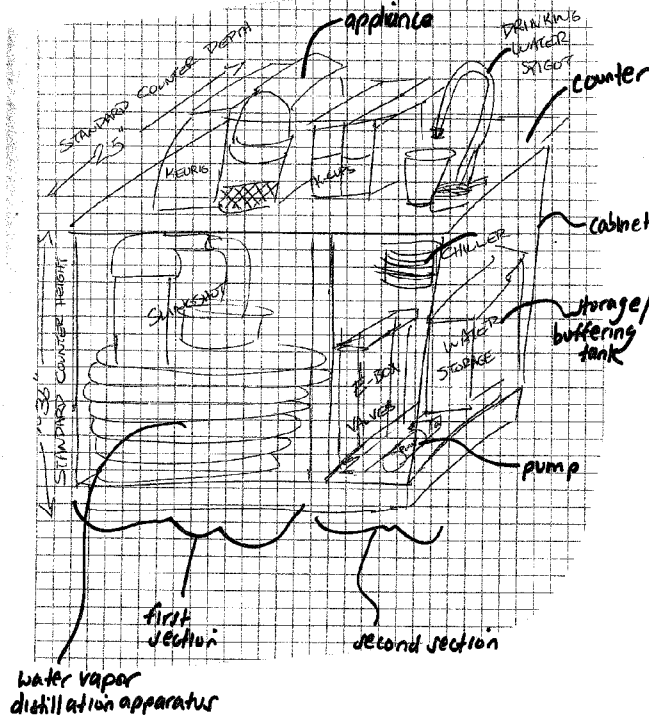 appliance
DRINKING
WATER
SPIGOT
counter
STANDARD COUNTER DEPTH
25"
KEURIG
K-CUPS
cabinet
CHILLER
SLINGSHOT
storage/
buffering
tank
WATER
STORAGE
E-BOX
VALVES
36"
STANDARD COUNTER HEIGHT
pump
first
section
second section
water vapor
distillation apparatus